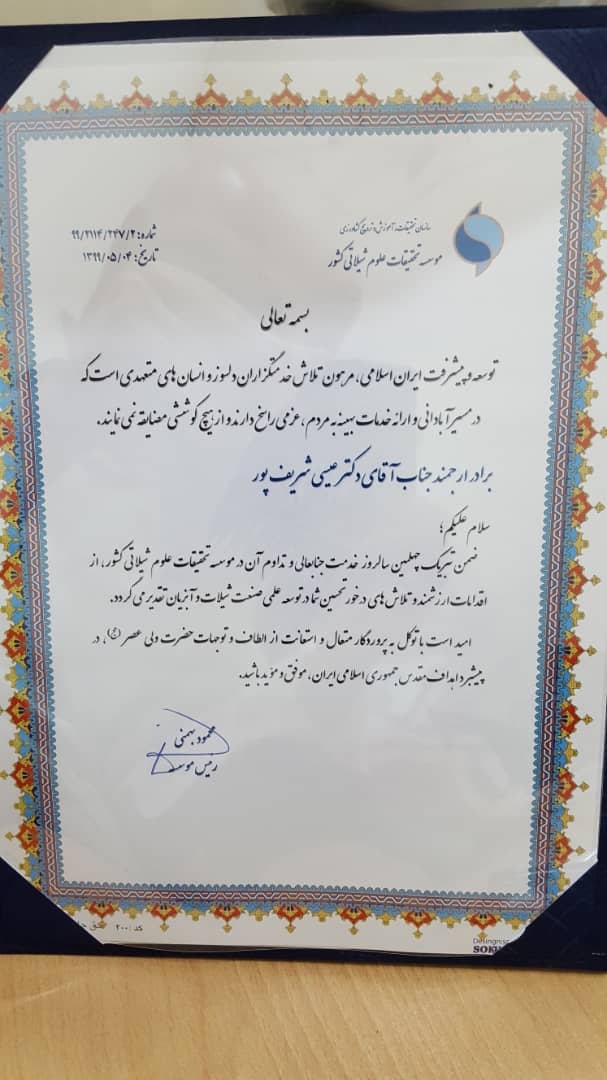 سازمان تحقیقات، آموزش و ترویج کشاورزی
موسسه تحقیقات علوم شیلاتی کشور
شماره: ۹۹/۲۱۱۴/۲۴۷/۲
تاریخ: ۱۳۹۹/۰۵/۰۴
بسمه تعالی
توسعه و پیشرفت ایران اسلامی، مرهون تلاش خدمتگزاران دلسوز و انسان های متعهدی است که
در مسیر آبادانی و ارائه خدمات بهینه به مردم، عزمی راسخ دارند و از هیچ کوششی مضایقه نمی نمایند.
برادر ارجمند جناب آقای دکتر عیسی شریف پور
سلام علیکم؛
ضمن تبریک چهلمین سالروز خدمت جنابعالی و تداوم آن در موسسه تحقیقات علوم شیلاتی کشور، از
اقدامات ارزشمند و تلاش های درخور تحسین شما در توسعه علمی صنعت شیلات و آبزیان تقدیر می گردد.
امید است با توکل به پروردگار متعال و استعانت از الطاف و توجهات حضرت ولی عصر (عج)، در
پیشبرد اهداف مقدس جمهوری اسلامی ایران، موفق و مؤید باشید.
محمود بهمنی
رئیس موسسه
کد: ۲۰۰